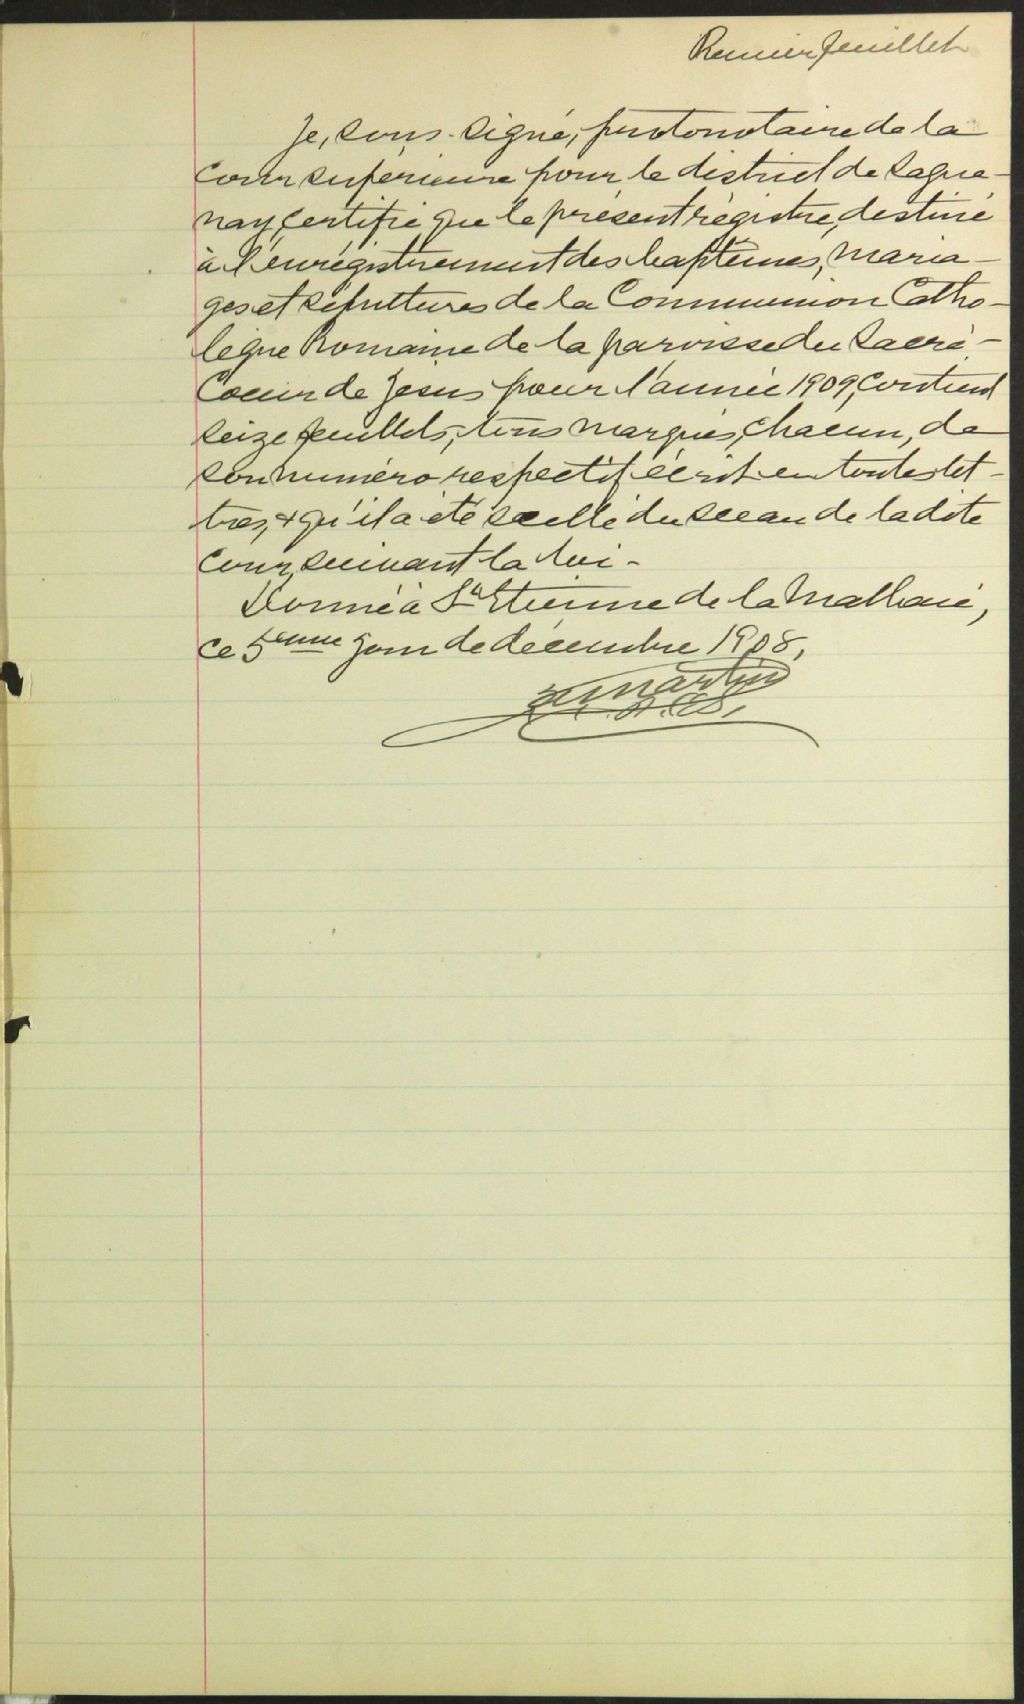 Premier feuillet
Je, sous-signé, protonotaire de la
Cour supérieure pour le district de Sague-
nay, certifie que le présent régistre, destiné
à l'enrégistrement des baptêmes, maria-
ges et sépultures de la Communion Catho-
lique Romaine de la paroisse du Sacré-
Coeur de Jésus pour l'année 1909, contient
seize feuillets, tous marqués, chacun, de
son numéro respectif écrit en toutes let-
tres, & qu'il a été scellé du sceau de la dite
Cour, suivant la loi -
Donné à St Etienne de la Malbaie,
ce 5ème jour de décembre 1908,
Martin